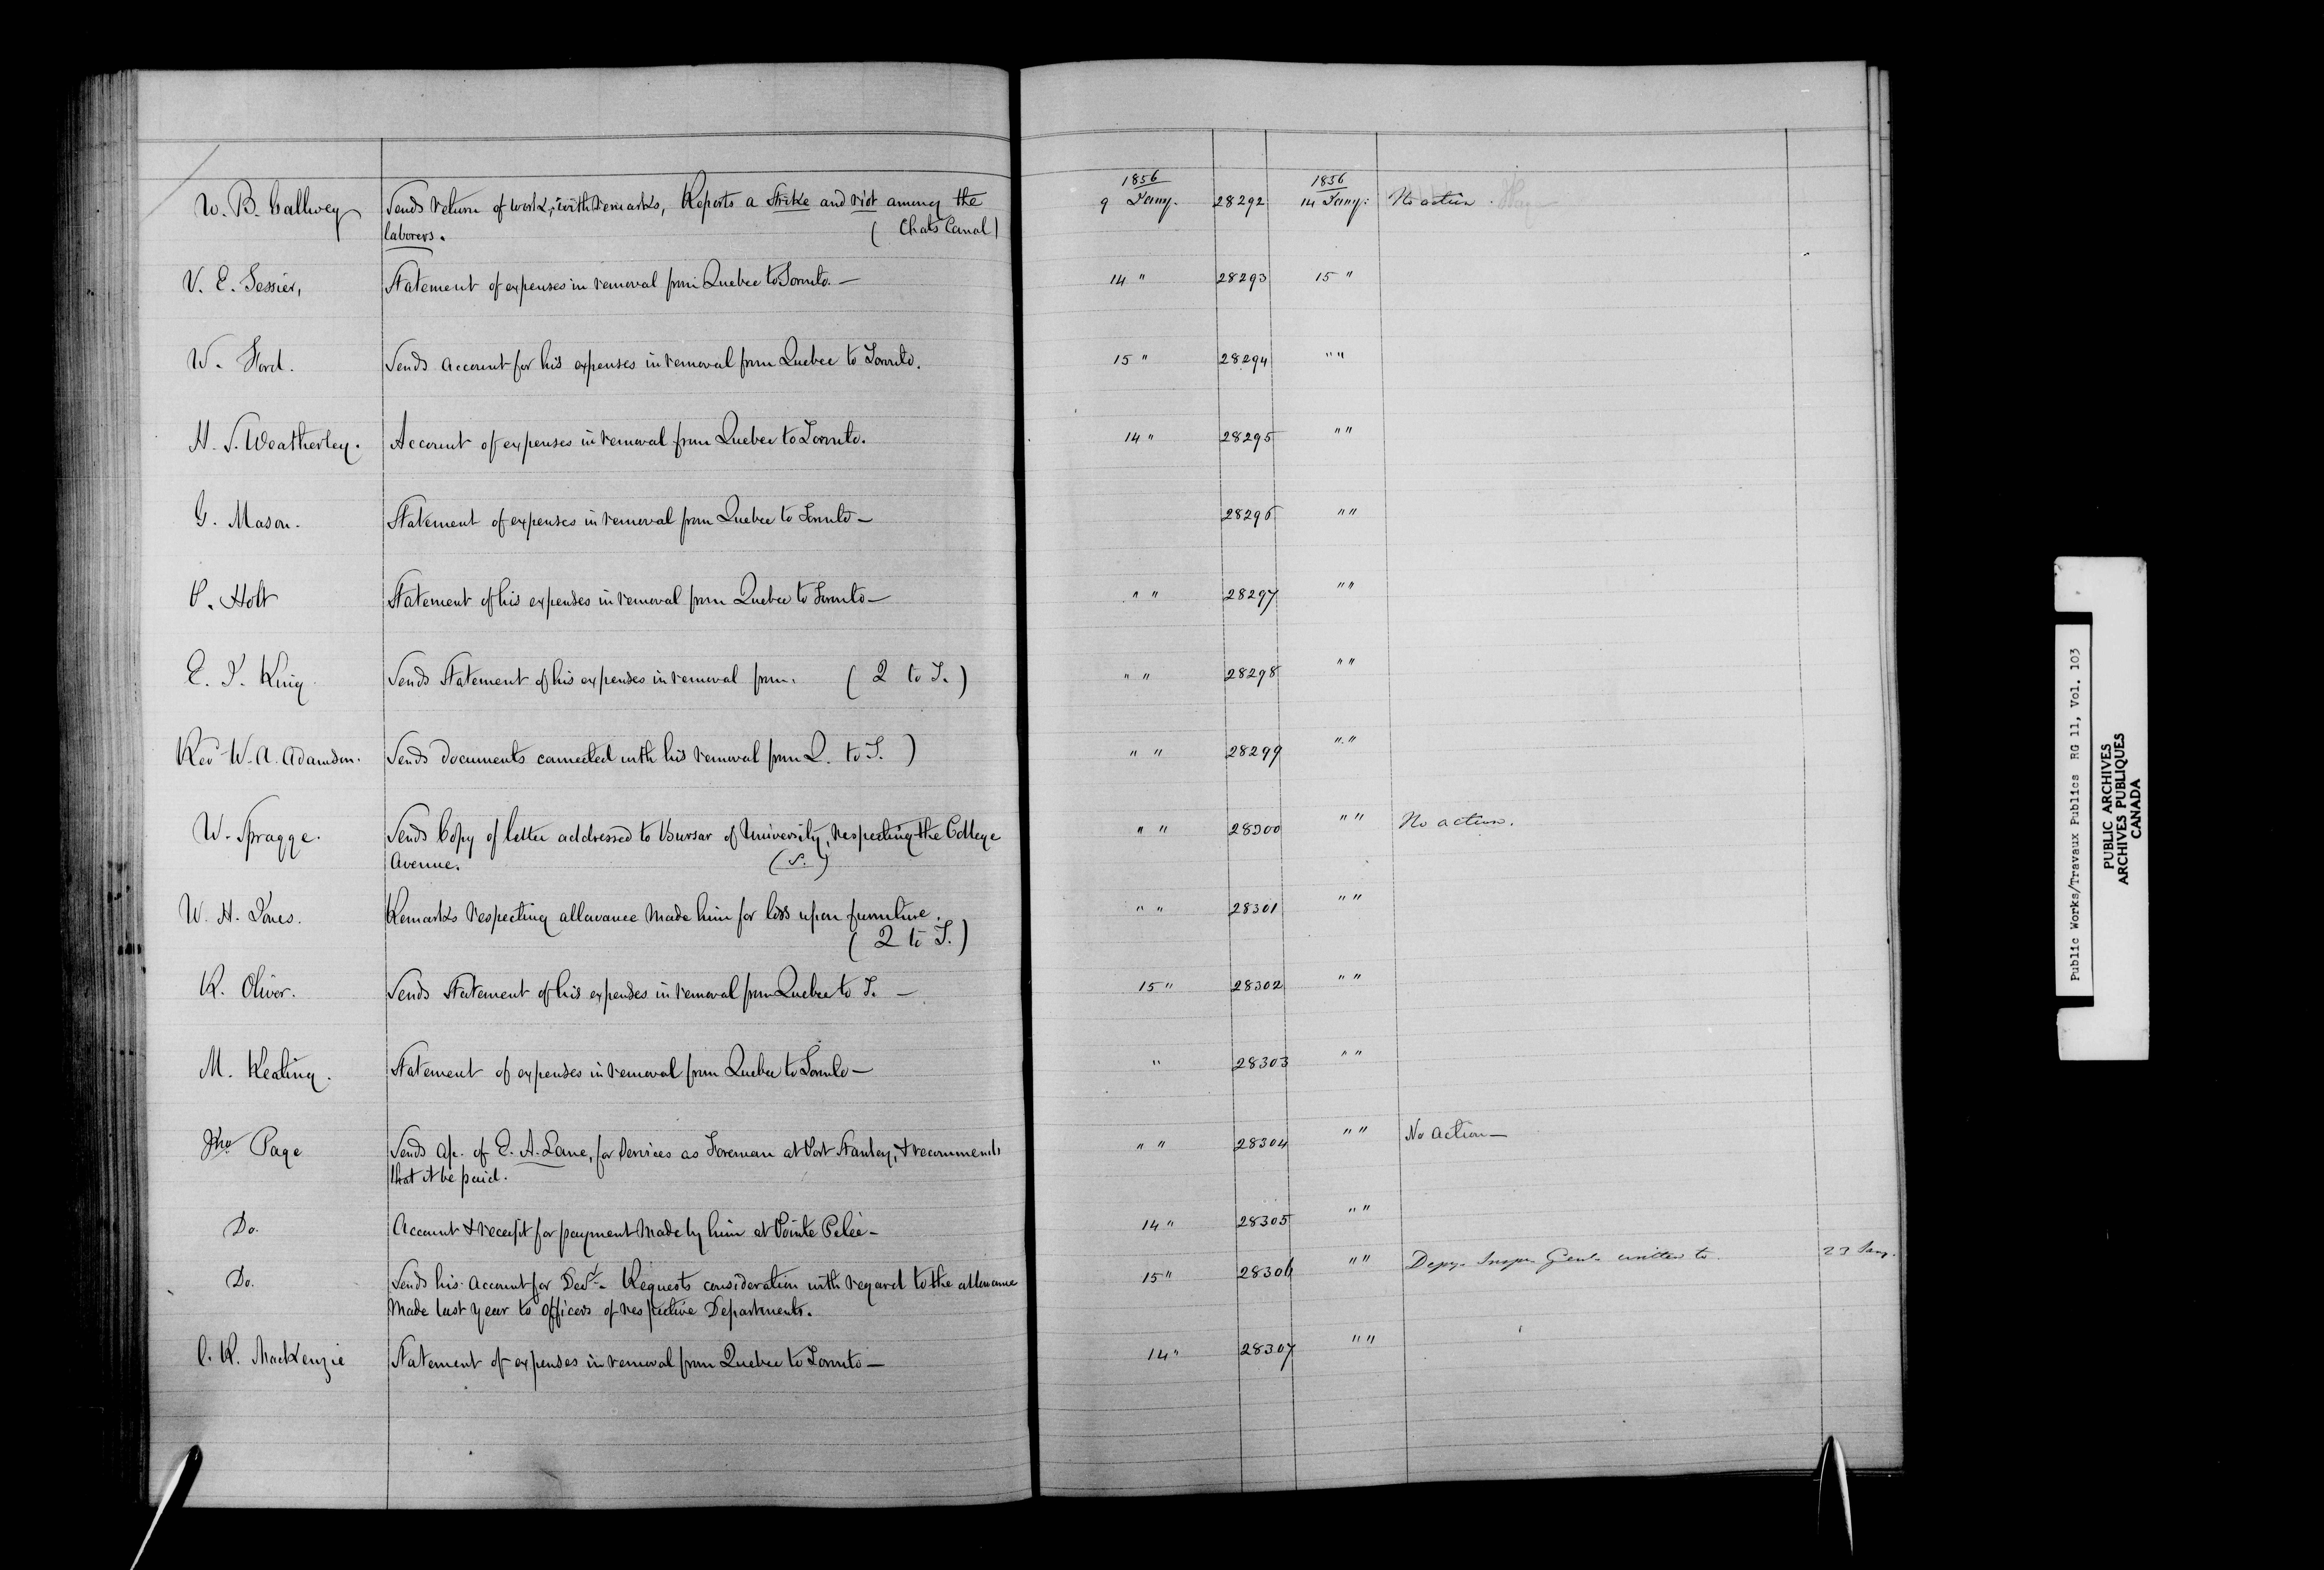 1856 1856
W. B. Gallwey Sends return of work, with remarks, Reports a Strike and riot among the 9 Jany. 28292 14 Jany: No action.
laborers. (Chats Canal)
V. E. Tessier, Statement of expenses in removal from Quebec to Toronto. — 14 " 28293 15 "
W. Ford. Sends account for his expenses in removal from Quebec to Toronto. 15 " 28294 " "
H. S. Weatherley. Account of expenses in removal from Quebec to Toronto. 14 " 28295 " "
G. Mason. Statement of expenses in removal from Quebec to Toronto — 28296 " "
P. Holt Statement of his expenses in removal from Quebec to Toronto — " " 28297 " "
E. J. King Sends Statement of his expenses in removal from. (Q to T.) " " 28298 " "
Revd W. A. Adamson. Sends documents connected with his removal from Q. to T. ) " " 28299 " "
W. Spragge. Sends Copy of letter addressed to Bursar of University, respecting the College " " 28300 " " No action.
Avenue. (S.)
W. H. Jones. Remarks respecting allowance made him for loss upon furniture. " " 28301 " "
(Q to T.)
R. Oliver. Sends Statement of his expenses in removal from Quebec to T. — 15 " 28302 " "
M. Keating. Statement of expenses in removal from Quebec to Toronto — " 28303 " "
Jno. Page Sends a/c. of E. A. Lane, for services as Foreman at Port Stanley, & recommends " " 28304 " " No action —
that it be paid.
Do. Account & receipt for payment made by him at Pointe Peleé — 14 " 28305 " "
Do. Sends his account for Decr. Requests consideration with regard to the allowance 15 " 28306 " " Depy. Inspr. Genl. written to 23 Jany.
made last year to officers of respective Departments.
C. R. MacKenzie Statement of expenses in removal from Quebec to Toronto — 14 " 28307 " "
Public Works/Travaux Publics RG 11, Vol. 103
PUBLIC ARCHIVES
ARCHIVES PUBLIQUES
CANADA